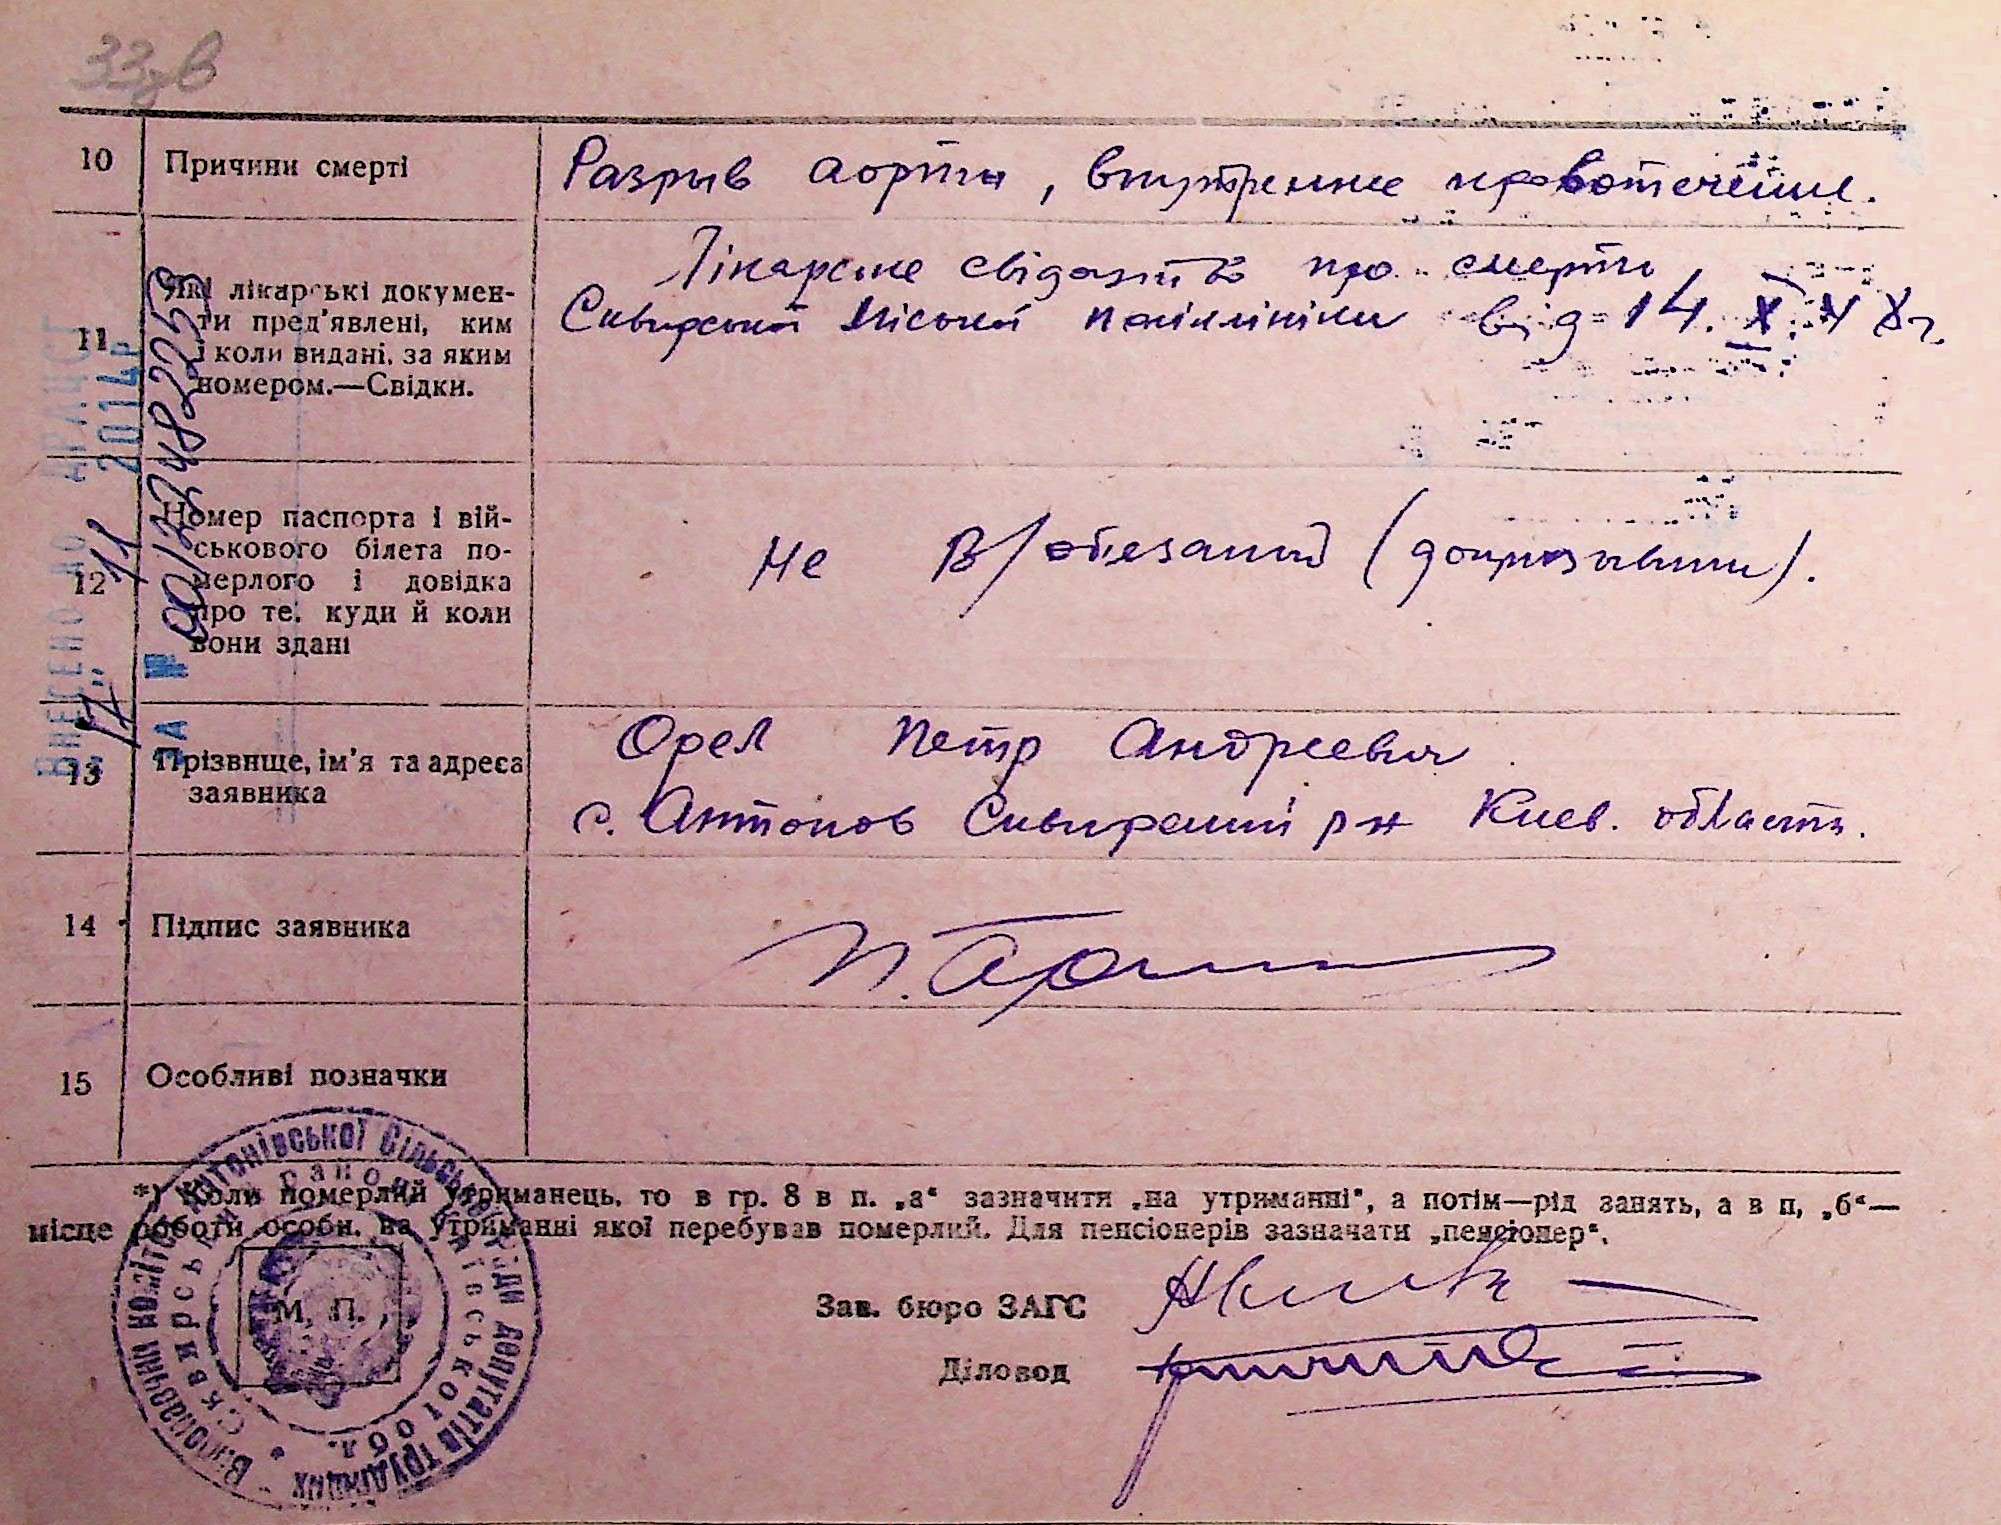 33зв
10 Причини смерті Разрыв аорты, внутреннее кровотечение.
11 Які лікарські докумен-
ти пред'явлені, ким
і коли видані, за яким
номером.—Свідки.
Лікарське свідоцтво про смерть
Сквирської міської поліклініки від 14. X. 48 г.
12 Номер паспорта і вій-
ськового білета по-
мерлого і довідка
про те, куди й коли
вони здані
Не в/обязаный (допризывник).
13 Прізвище, ім'я та адреса
заявника
Орел Петр Андреевич
с. Антонов Сквирский р-н Киев. область.
14 Підпис заявника
15 Особливі позначки
*) Коли померлий утриманець, то в гр. 8 в п. „а“ зазначити „на утриманні“, а потім—рід занять, а в п, „б“—
місце роботи особи, на утриманні якої перебував померлий. Для пенсіонерів зазначати „пенсіонер“.
М. П.
Зав. бюро ЗАГС
Діловод
Виконавчий комітет Антонівської Сільської Ради депутатів трудящих
Сквирський район Київської обл.
ВНЕСЕНО ДО ДРАЦСГ
17 11 2014р
ЗА №